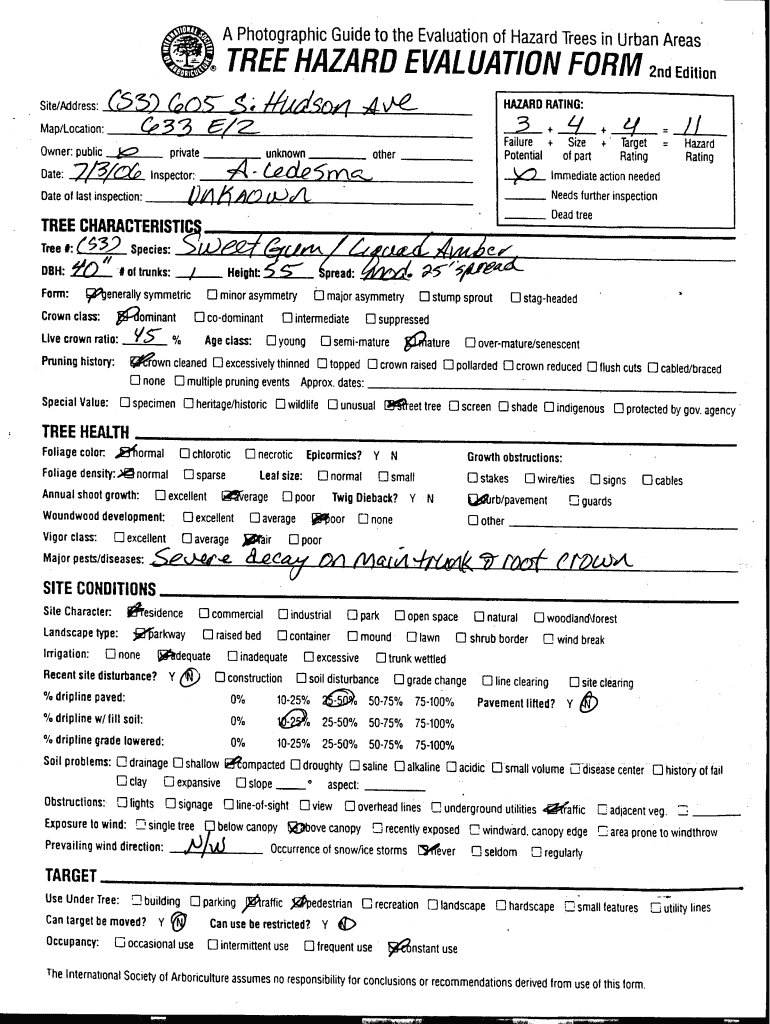 A Photographic Guide to the Evaluation of Hazard Trees in Urban Areas
TREE HAZARD EVALUATION FORM 2nd Edition
INTERNATIONAL SOCIETY OF ARBORICULTURE
Site/Address: (53) 605 S. Hudson Ave
Map/Location: 633 E/2
Owner: public private unknown other
Date: 7/3/06 Inspector: A. Ledesma
Date of last inspection: UNKAOWN
HAZARD RATING:
3 + 4 + 4 = 11
Failure + Size + Target = Hazard
Potential of part Rating Rating
Immediate action needed
Needs further inspection
Dead tree
TREE CHARACTERISTICS
Tree #: (53) Species: Sweet Gum / Liquad Amber
DBH: 40" # of trunks: 1 Height: 55 Spread: mod. 25" spread
Form: generally symmetric minor asymmetry major asymmetry stump sprout stag-headed
Crown class: dominant co-dominant intermediate suppressed
Live crown ratio: 45 % Age class: young semi-mature mature over-mature/senescent
Pruning history: crown cleaned excessively thinned topped crown raised pollarded crown reduced flush cuts cabled/braced
none multiple pruning events Approx. dates:
Special Value: specimen heritage/historic wildlife unusual street tree screen shade indigenous protected by gov. agency
TREE HEALTH
Foliage color: normal chlorotic necrotic Epicormics? Y N Growth obstructions:
Foliage density: normal sparse Leaf size: normal small stakes wire/ties signs cables
Annual shoot growth: excellent average poor Twig Dieback? Y N curb/pavement guards
Woundwood development: excellent average poor none other
Vigor class: excellent average fair poor
Major pests/diseases: Severe decay on main trunk & root crown
SITE CONDITIONS
Site Character: residence commercial industrial park open space natural woodland\forest
Landscape type: parkway raised bed container mound lawn shrub border wind break
Irrigation: none adequate inadequate excessive trunk wettled
Recent site disturbance? Y N construction soil disturbance grade change line clearing site clearing
% dripline paved: 0% 10-25% 25-50% 50-75% 75-100% Pavement lifted? Y N
% dripline w/ fill soil: 0% 10-25% 25-50% 50-75% 75-100%
% dripline grade lowered: 0% 10-25% 25-50% 50-75% 75-100%
Soil problems: drainage shallow compacted droughty saline alkaline acidic small volume disease center history of fail
clay expansive slope ° aspect:
Obstructions: lights signage line-of-sight view overhead lines underground utilities traffic adjacent veg.
Exposure to wind: single tree below canopy above canopy recently exposed windward, canopy edge area prone to windthrow
Prevailing wind direction: N/W Occurrence of snow/ice storms never seldom regularly
TARGET
Use Under Tree: building parking traffic pedestrian recreation landscape hardscape small features utility lines
Can target be moved? Y N Can use be restricted? Y N
Occupancy: occasional use intermittent use frequent use constant use
The International Society of Arboriculture assumes no responsibility for conclusions or recommendations derived from use of this form.